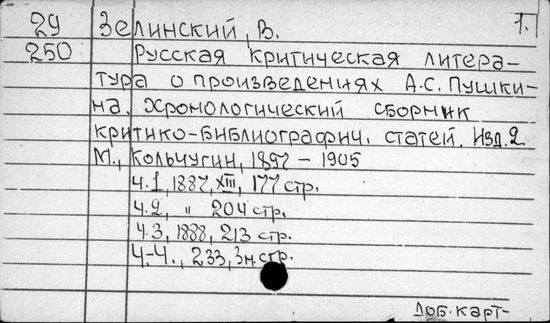 29 Зелинский, В. 1.
250 Русская критическая литера-
тура о произведениях А.С. Пушки-
на. Хронологический сборник
критико-библиографич. статей. Изд. 2
М., Кольчугин, 1897 – 1905
ч. 1, 1887, XIII, 177 стр.
ч. 2, " 204 стр.
ч. 3, 1888, 213 стр.
Ч-Ч., 233, 3н. стр.
Доб. карт-